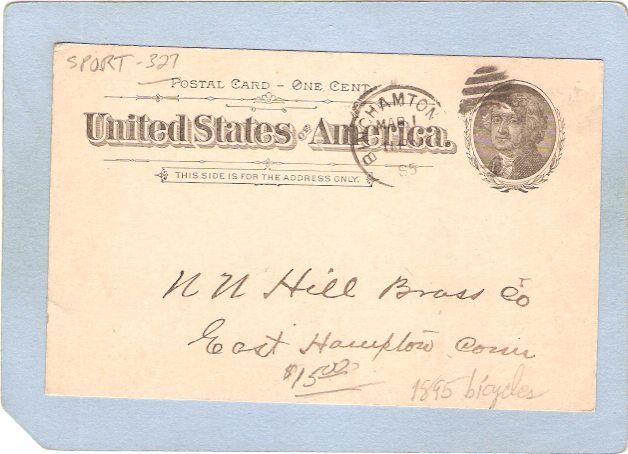 SPORT-327
POSTAL CARD - ONE CENT.
United States of America.
THIS SIDE IS FOR THE ADDRESS ONLY.
BINGHAMTON
MAR 1
95
N N Hill Brass Co
East Hampton Conn
$15.00
1895 bicycles